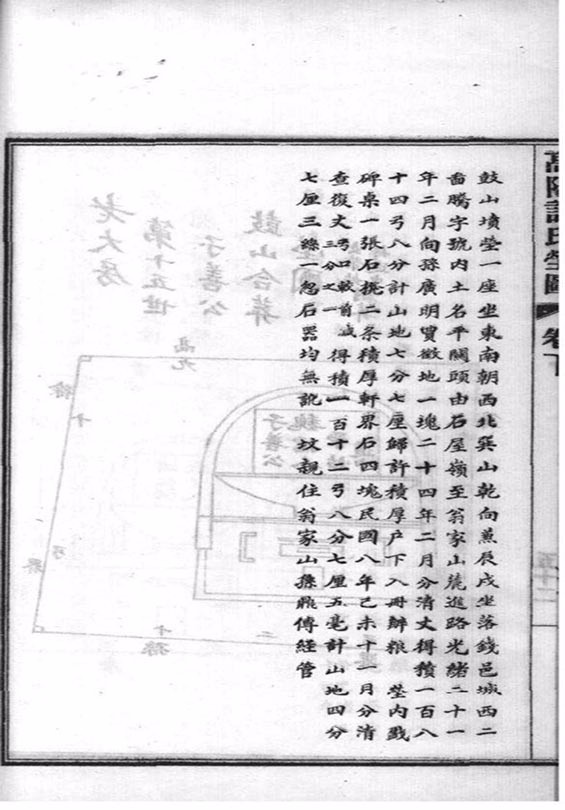 高陽許氏塋圖 卷下
鼓山墳塋一座坐東南朝西北巽山乾向兼辰戌坐落錢邑城西二
啚騰字號內土名平闊頭由石屋嶺至翁家山麓進路光緒二十一
年二月向孫廣明買徵地一塊二十四年二月分清丈得積一百八
十四弓八分計山地七分七厘歸許積厚戶下入冊辦粮 塋內戤
碑桌一張石櫈二条積厚軒界石四塊民國八年己未十一月分清
查復丈弓口較前減三分之一得積一百十二弓八分七厘五毫計山地四分
七厘三絲一忽石器均無訛坟親住翁家山孫鼎傳經管
鼓山合葬
子善公
第十五世
老大房
子善公